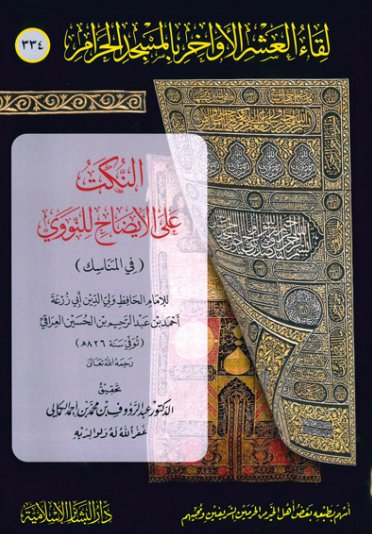 لقاء العشر الأواخر بالمسجد الحرام
٣٣٤
النكت
على الإيضاح للنووي
(في المناسك)
للإمام الحافظ ولي الدين أبي زرعة
أحمد بن عبد الرحيم بن الحسين العراقي
(توفي سنة ٨٢٦هـ)
رحمه الله تعالى
تحقيق
الدكتور عبد الرؤوف بن محمد بن أحمد الكمالي
غفر الله له ولوالديه
أسهم بطبعه بعض أهل الخير من الحرمين الشريفين ومحبيهم
دار البشائر الإسلامية